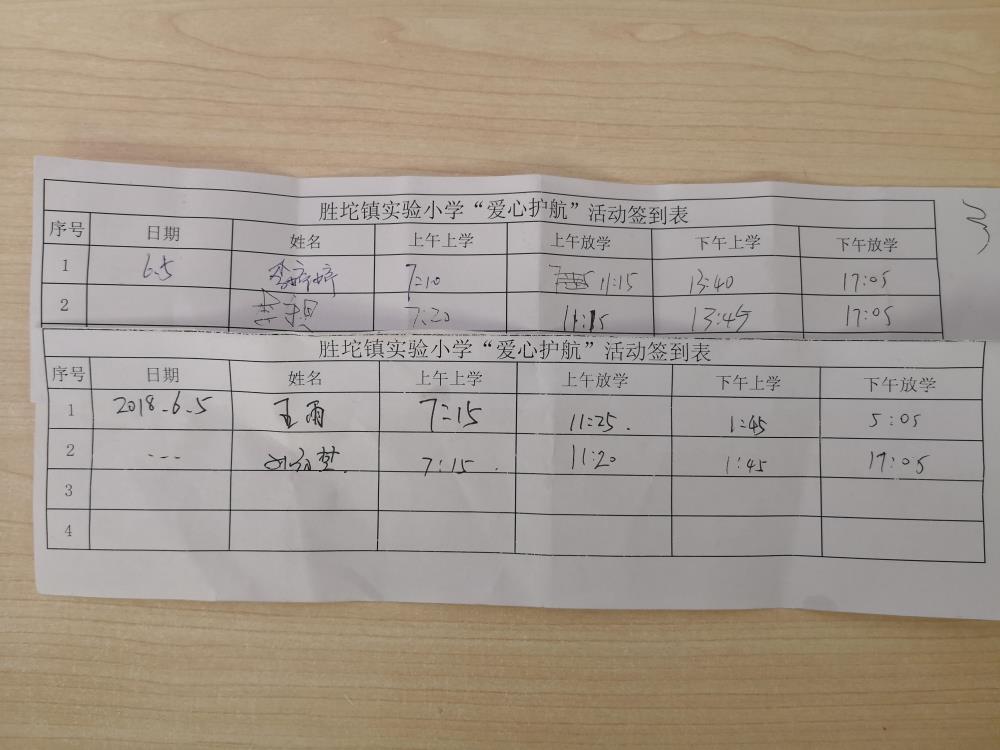 胜坨镇实验小学“爱心护航”活动签到表
序号 日期 姓名 上午上学 上午放学 下午上学 下午放学
1 6.5 李婷婷 7:10 11:15 13:40 17:05
2 7:20 11:15 13:45 17:05
胜坨镇实验小学“爱心护航”活动签到表
序号 日期 姓名 上午上学 上午放学 下午上学 下午放学
1 2018.6.5 王雨 7:15 11:25. 1:45 5:05
2 --- 7:15. 11:20 1:45 17:05
3
4